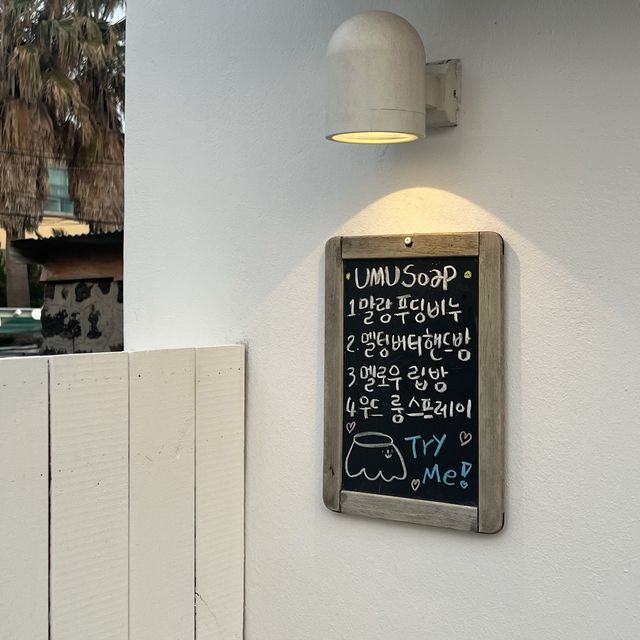 UMU Soap
1 말랑 푸딩비누
2. 멜팅버터핸드밤
3 멜로우 립밤
4 우드 룸스프레이
Try
Me!